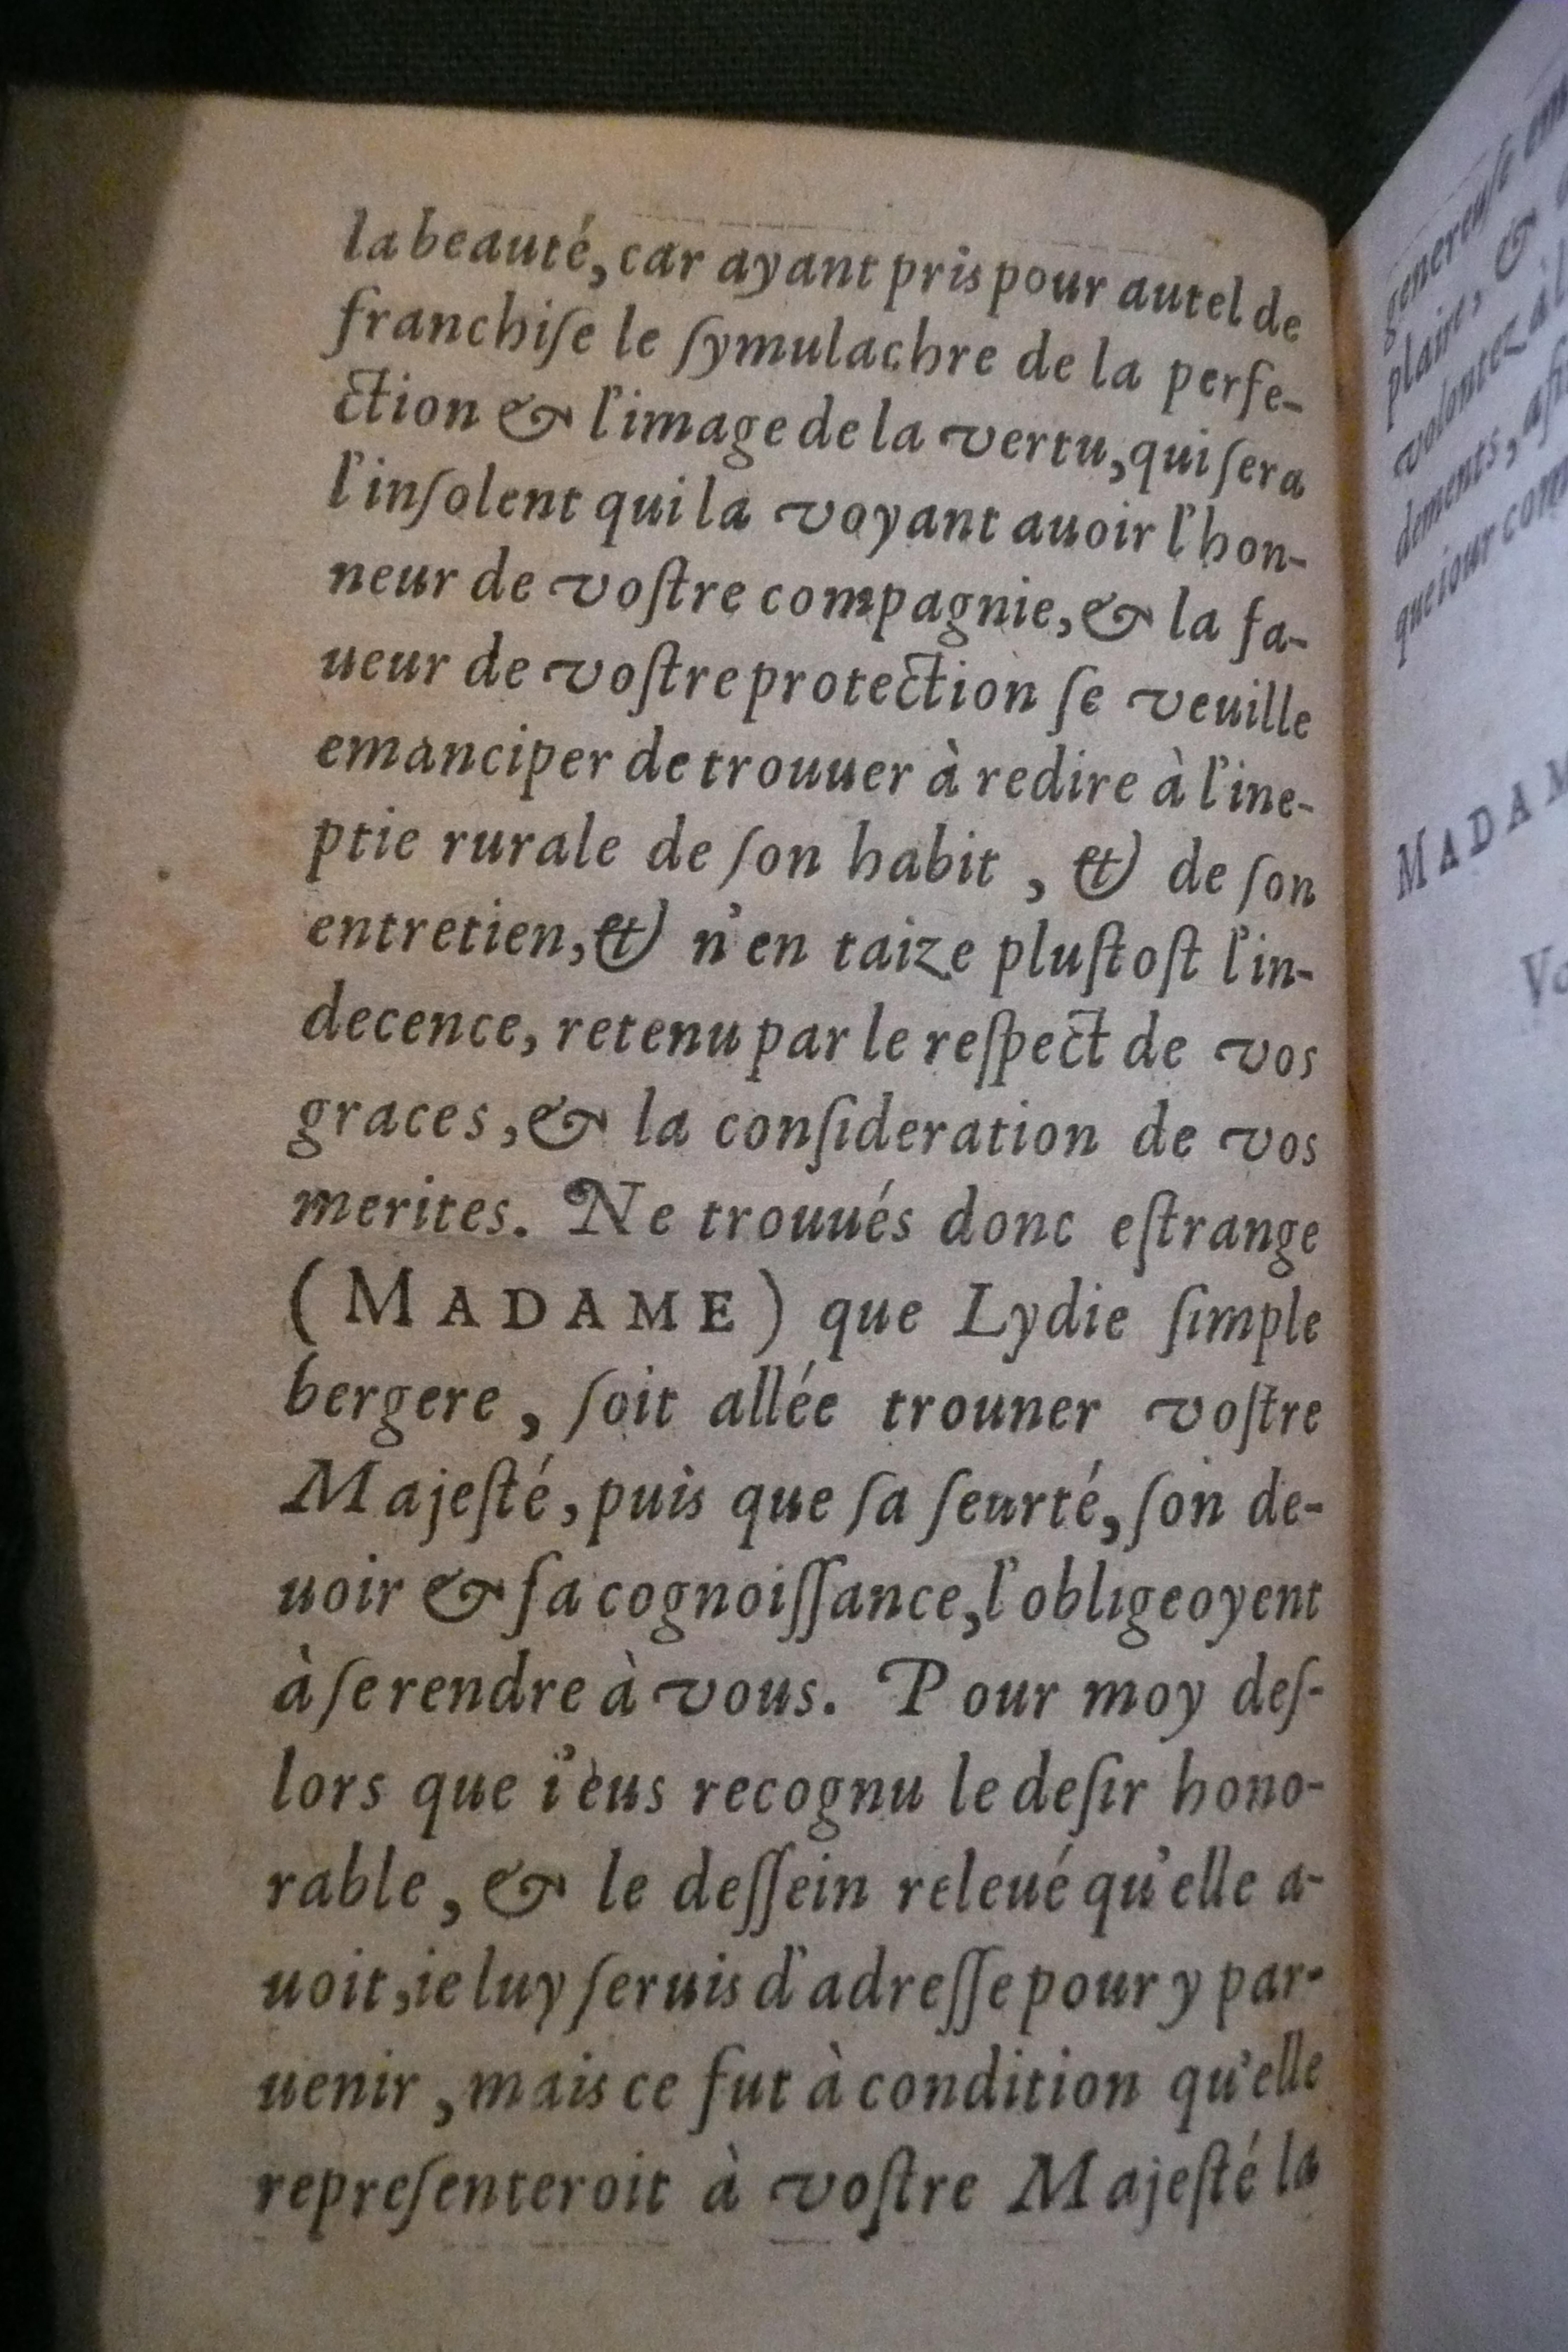 la beauté, car ayant pris pour autel de
franchiſe le ſymulachre de la perfe-
ction & l'image de la vertu, qui ſera
l'inſolent qui la voyant auoir l'hon-
neur de voſtre compagnie, & la fa-
ueur de voſtre protection ſe veuille
emanciper de trouuer à redire à l'ine-
ptie rurale de ſon habit, & de ſon
entretien, & n'en taize pluſtoſt l'in-
decence, retenu par le reſpect de vos
graces, & la conſideration de vos
merites. Ne trouués donc eſtrange
(MADAME) que Lydie ſimple
bergere, ſoit allée trouner voſtre
Majeſté, puis que ſa ſeurté, ſon de-
uoir & ſa cognoiſſance, l'obligeoyent
à ſe rendre à vous. Pour moy deſ-
lors que i'eus recognu le deſir hono-
rable, & le deſſein releué qu'elle a-
uoit, ie luy ſeruis d'adreſſe pour y par-
uenir, mais ce fut à condition qu'elle
repreſenteroit à voſtre Majeſté la
genereuſe
plaire, &
volontez
dements,
que iour